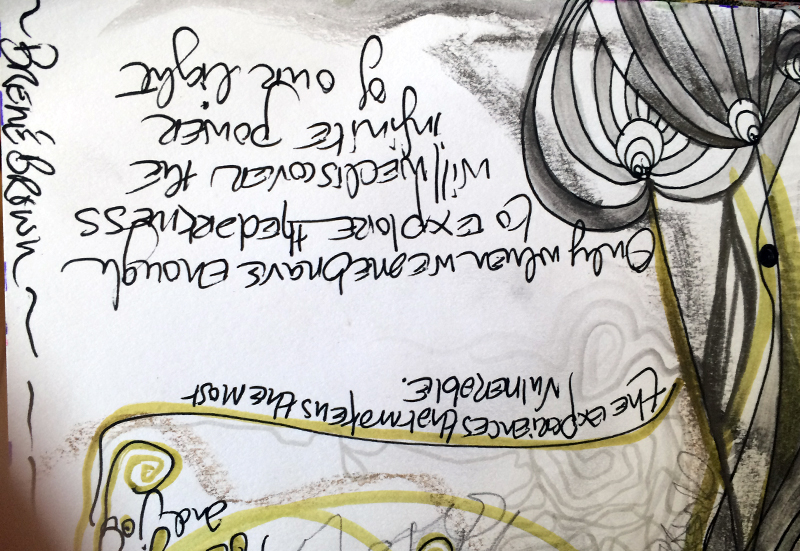 and joy
the experiences that make us the most
vulnerable.
Only when we are brave enough
to explore the darkness
will we discover the
infinite power
of our light
~ BRENÉ BROWN ~